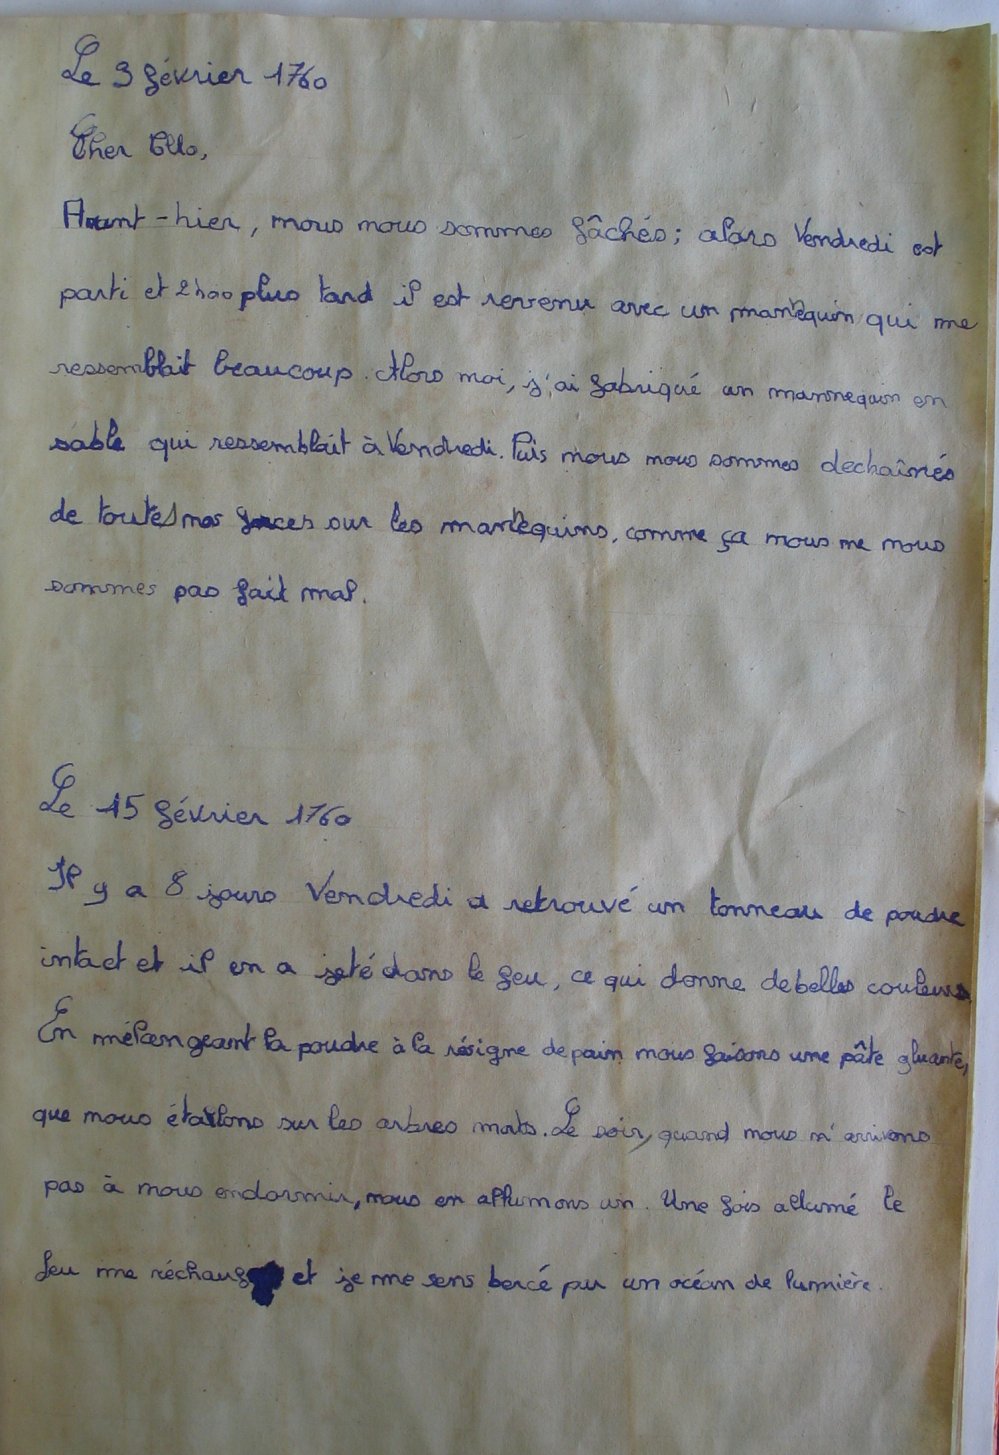 Le 3 février 1760
Cher
Avant-hier, nous nous sommes fâchés; alors Vendredi est
parti et 2h00 plus tard il est revenu avec un mannequin qui me
ressemblait beaucoup. Alors moi, j'ai fabriqué un mannequin en
sable qui ressemblait à Vendredi. Puis nous nous sommes dechaînés
de toutes nos forces sur les mannequins, comme ça nous ne nous
sommes pas fait mal.
Le 15 février 1760
Il y a 8 jours Vendredi a retrouvé un tonneau de poudre
intact et il en a jeté dans le feu, ce qui donne de belles couleurs.
En mélangeant la poudre à la résigne de pain nous faisons une pâte gluante,
que nous étallons sur les arbres morts. Le soir, quand nous n'arrivons
pas à nous endormir, nous en allumons un. Une fois allumé le
feu me réchauf et je me sens bercé par un océan de lumière.